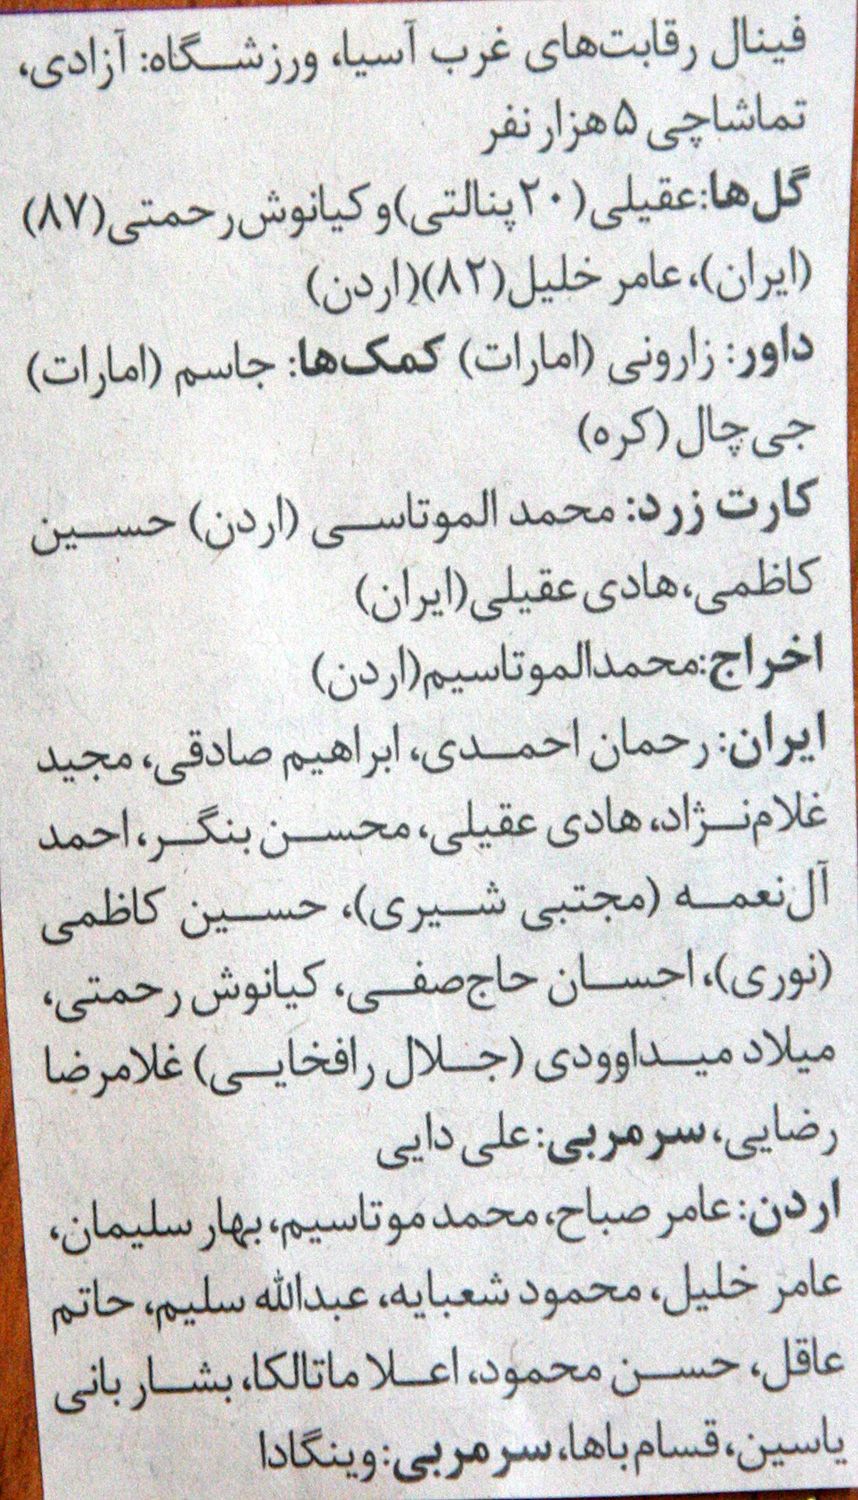 فینال رقابت‌های غرب آسیا، ورزشگاه: آزادی،
تماشاچی ۵ هزار نفر
گل‌ها: عقیلی (۲۰ پنالتی) و کیانوش رحمتی (۸۷)
(ایران)، عامر خلیل (۸۲) (اردن)
داور: زارونی (امارات) کمک‌ها: جاسم (امارات)
جی چال (کره)
کارت زرد: محمد الموتاسی (اردن) حسین
کاظمی، هادی عقیلی (ایران)
اخراج: محمدالموتاسیم (اردن)
ایران: رحمان احمدی، ابراهیم صادقی، مجید
غلام‌نژاد، هادی عقیلی، محسن بنگر، احمد
آل‌نعمه (مجتبی شیری)، حسین کاظمی
(نوری)، احسان حاج‌صفی، کیانوش رحمتی،
میلاد میداوودی (جلال رافخایی) غلامرضا
رضایی، سرمربی: علی دایی
اردن: عامر صباح، محمد موتاسیم، بهار سلیمان،
عامر خلیل، محمود شعبایه، عبدالله سلیم، حاتم
عاقل، حسن محمود، اعلا ماتالکا، بشار بانی
یاسین، قسام باها، سرمربی: وینگادا